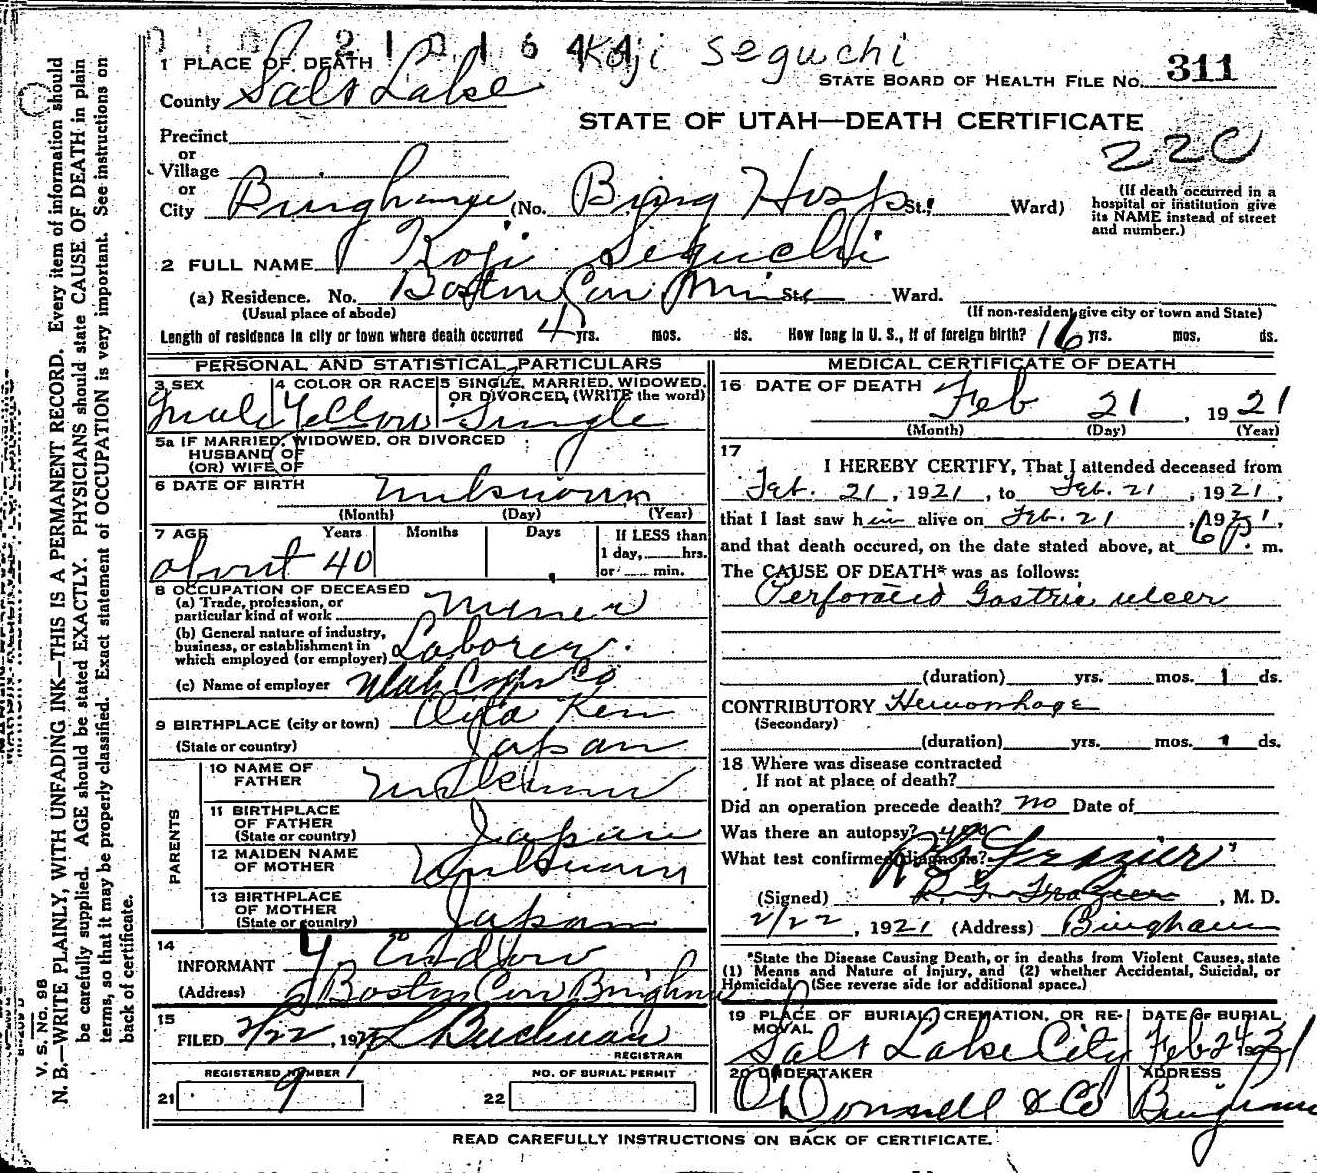 2101644 Koji Seguchi
1 PLACE OF DEATH
STATE BOARD OF HEALTH FILE NO. 311
County Salt Lake
STATE OF UTAH—DEATH CERTIFICATE
220
Precinct
or
Village
or
City Bingham (No. Bing Hosp St.; Ward)
(If death occurred in a hospital or institution give its NAME instead of street and number.)
2 FULL NAME Koji Seguchi
(a) Residence. No. Boston Con Mine St. Ward.
(Usual place of abode) (If non-resident give city or town and State)
Length of residence in city or town where death occurred 4 yrs. mos. ds. How long in U. S., if of foreign birth? 16 yrs. mos. ds.
PERSONAL AND STATISTICAL PARTICULARS
3 SEX Male
4 COLOR OR RACE Yellow
5 SINGLE, MARRIED, WIDOWED, OR DIVORCED, (WRITE the word) Single
5a IF MARRIED, WIDOWED, OR DIVORCED
HUSBAND OF
(OR) WIFE OF
6 DATE OF BIRTH Unknown
(Month) (Day) (Year)
7 AGE Years Months Days If LESS than
1 day, hrs.
or min.
about 40
8 OCCUPATION OF DECEASED
(a) Trade, profession, or
particular kind of work Miner
(b) General nature of industry,
business, or establishment in
which employed (or employer) Laborer.
(c) Name of employer Utah Copper Co
9 BIRTHPLACE (city or town) Oita Ken
(State or country) Japan
PARENTS
10 NAME OF FATHER Unknown
11 BIRTHPLACE OF FATHER
(State or country) Japan
12 MAIDEN NAME OF MOTHER Unknown
13 BIRTHPLACE OF MOTHER
(State or country) Japan
14
INFORMANT Y. Endow
(Address) Boston Con Bingham
15
FILED 2/22, 192 Buchman
REGISTRAR
REGISTERED NUMBER
21 9
NO. OF BURIAL PERMIT
22
MEDICAL CERTIFICATE OF DEATH
16 DATE OF DEATH Feb 21, 1921
(Month) (Day) (Year)
17
I HEREBY CERTIFY, That I attended deceased from
Feb. 21, 1921, to Feb. 21, 1921,
that I last saw him alive on Feb. 21, 1921,
and that death occured, on the date stated above, at 6 P. m.
The CAUSE OF DEATH* was as follows:
Perforated Gastric ulcer
(duration) yrs. mos. 1 ds.
CONTRIBUTORY Hemorrhage
(Secondary)
(duration) yrs. mos. 1 ds.
18 Where was disease contracted
If not at place of death?
Did an operation precede death? no Date of
Was there an autopsy? yes
What test confirmed diagnosis? R. G. Frazier
(Signed) R. G. Frazier, M. D.
2/22, 1921 (Address) Bingham
*State the Disease Causing Death, or in deaths from Violent Causes, state
(1) Means and Nature of Injury, and (2) whether Accidental, Suicidal, or
Homicidal. (See reverse side for additional space.)
19 PLACE OF BURIAL, CREMATION, OR REMOVAL Salt Lake City
DATE OF BURIAL Feb 24 1921
20 UNDERTAKER O'Donnell & Co
ADDRESS Bingham
READ CAREFULLY INSTRUCTIONS ON BACK OF CERTIFICATE.
V. S. No. 98
N. B.—WRITE PLAINLY, WITH UNFADING INK—THIS IS A PERMANENT RECORD. Every item of information should
be carefully supplied. AGE should be stated EXACTLY. PHYSICIANS should state CAUSE OF DEATH in plain
terms, so that it may be properly classified. Exact statement of OCCUPATION is very important. See instructions on
back of certificate.